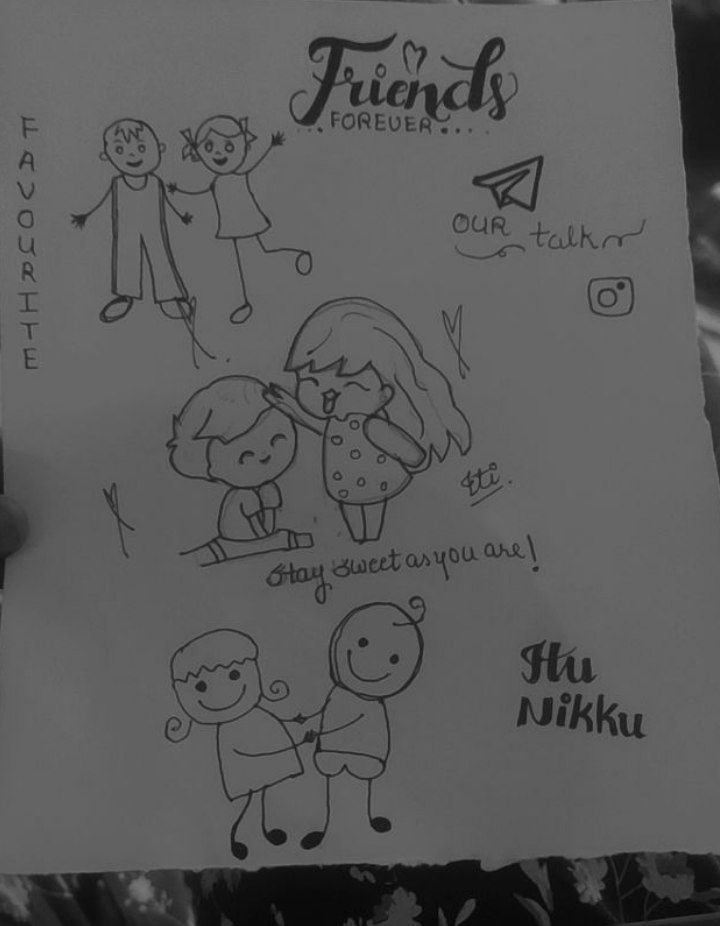 Friends
...FOREVER....
FAVOURITE
OUR talk
Iti.
Stay Sweet as you are!
Nikku